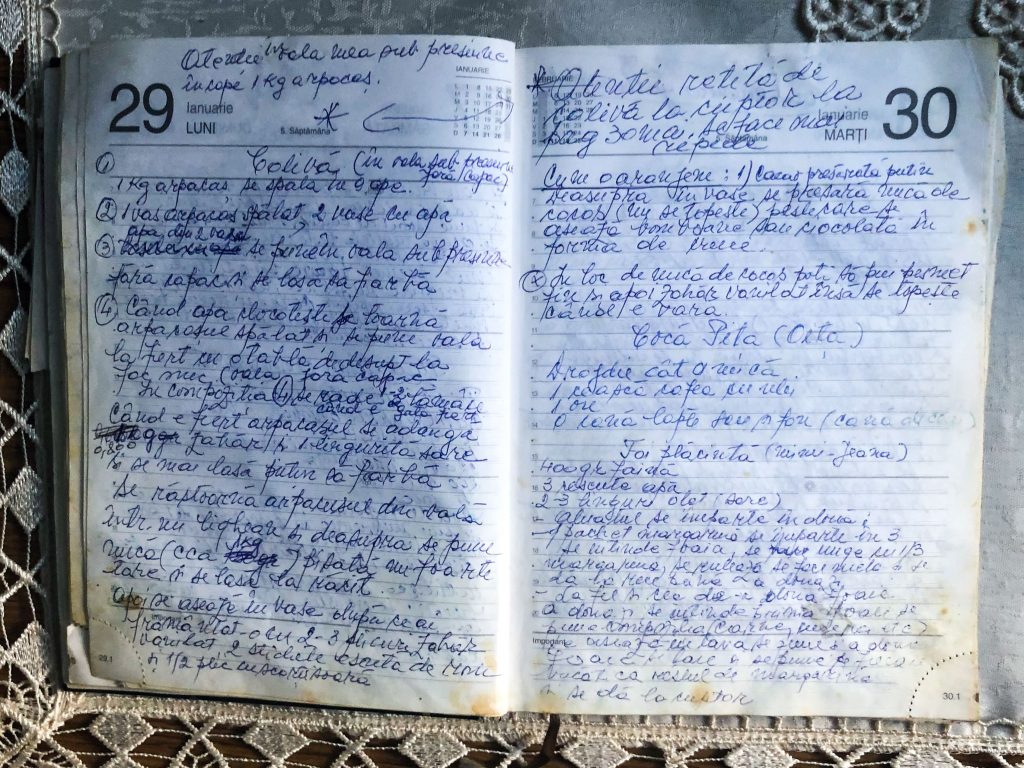 Atenție în oala mea sub presiune
încape 1 kg arpacaș.
29
Ianuarie
LUNI
5. Săptămâna
IANUARIE
① Colivă (în oala sub presiune
fără capac)
1 kg arpacaș se spală în 9 ape.
② 1 vas arpacaș spălat, 2 vase cu apă
apa din 2 vase
③ se pune în oala sub presiune
fără capac și se lasă să fiarbă
④ Când apa clocotește se toarnă
arpacașul spălat și se pune oala
la fiert cu dedesupt la
foc mic (oala fără capac
În compoziția se rade lămâie
când e gata fiert
Când e fiert arpacașul se adaugă
0,800 zahăr și 1 linguriță sare
și se mai lasă puțin să fiarbă
Se răstoarnă arpacașul din oală
într-un lighean și deasupra se pune
nucă (cca 1 kg) pisată nu foarte
tare și se lasă la răcit.
apoi se așează în vase după ce ai
frământat-o cu 2-3 plicuri zahăr
vanilat, 2 sticluțe esență de rom
și 1/2 plic scorțișoară
29.1
* Atenție rețetă de
colivă la cuptor la
pag zona. Se face mai
repede
FEBRUARIE
Ianuarie
MARȚI
30
Cum o aranjăm: 1) Cacao presărată puțin
deasupra în vase se presară nucă de
cocos (nu se topește) peste care se
așează bomboane sau ciocolată în
formă de cruce.
② În loc de nucă de cocos poți să pui pesmet
fin și apoi zahăr vanilat însă se topește
când e vara.
Cocă Pita (Orița)
Drojdie cât o nucă
1 ceașcă cafea cu ulei
1 ou
o cană lapte sau (cană
Foi plăcintă (mimi-Jeana)
400 gr faină
3 cescuțe apă
2-3 linguri oțet (sare)
aluatul se împarte în două;
1 pachet margarină se împarte în 3
se întinde foaia, se unge cu 1/3
margarină, se rulează se face melc și se
dă la rece până la două
- La fel și cea de-a doua foaie
a doua și se întinde prima foaie se
pune compoziția (carne,
Important
se așează în tava și vine a doua
foaie și se pune
bucăți cu restul de margarină
și se dă la cuptor
30.1